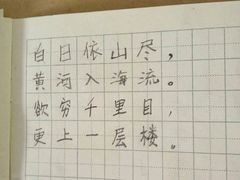 白日依山尽，
黄河入海流。
欲穷千里目，
更上一层楼。